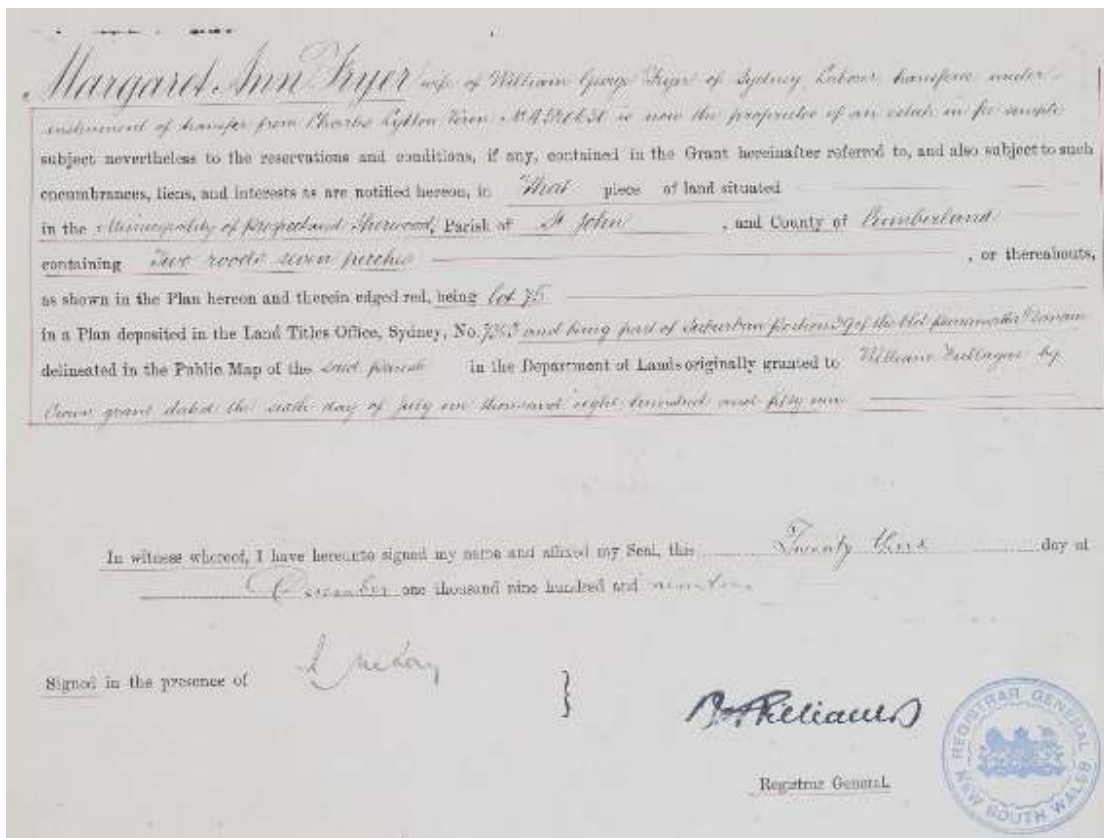 Margaret Ann Fryer wife of William George Fryer of Sydney, Labourer, transferee under
instrument of transfer from Charles Lytton is now the proprietor of an estate in fee simple
subject nevertheless to the reservations and conditions, if any, contained in the Grant hereinafter referred to, and also subject to such
encumbrances, liens, and interests as are notified hereon, in That piece of land situated
in the Municipality of Prospect and Sherwood, Parish of St John , and County of Cumberland
containing Two roods seven perches , or thereabouts,
as shown in the Plan hereon and therein edged red, being lot 75
in a Plan deposited in the Land Titles Office, Sydney, No. and being part of Suburban Portion of the Old Parramatta Domain
delineated in the Public Map of the said parish in the Department of Lands originally granted to William Fullagar by
Crown grant dated the sixth day of July one thousand eight hundred and fifty nine
In witness whereof, I have hereunto signed my name and affixed my Seal, this Twenty third day of
December one thousand nine hundred and nineteen
Signed in the presence of
}
Williams
Registrar General.
REGISTRAR GENERAL
NEW SOUTH WALES